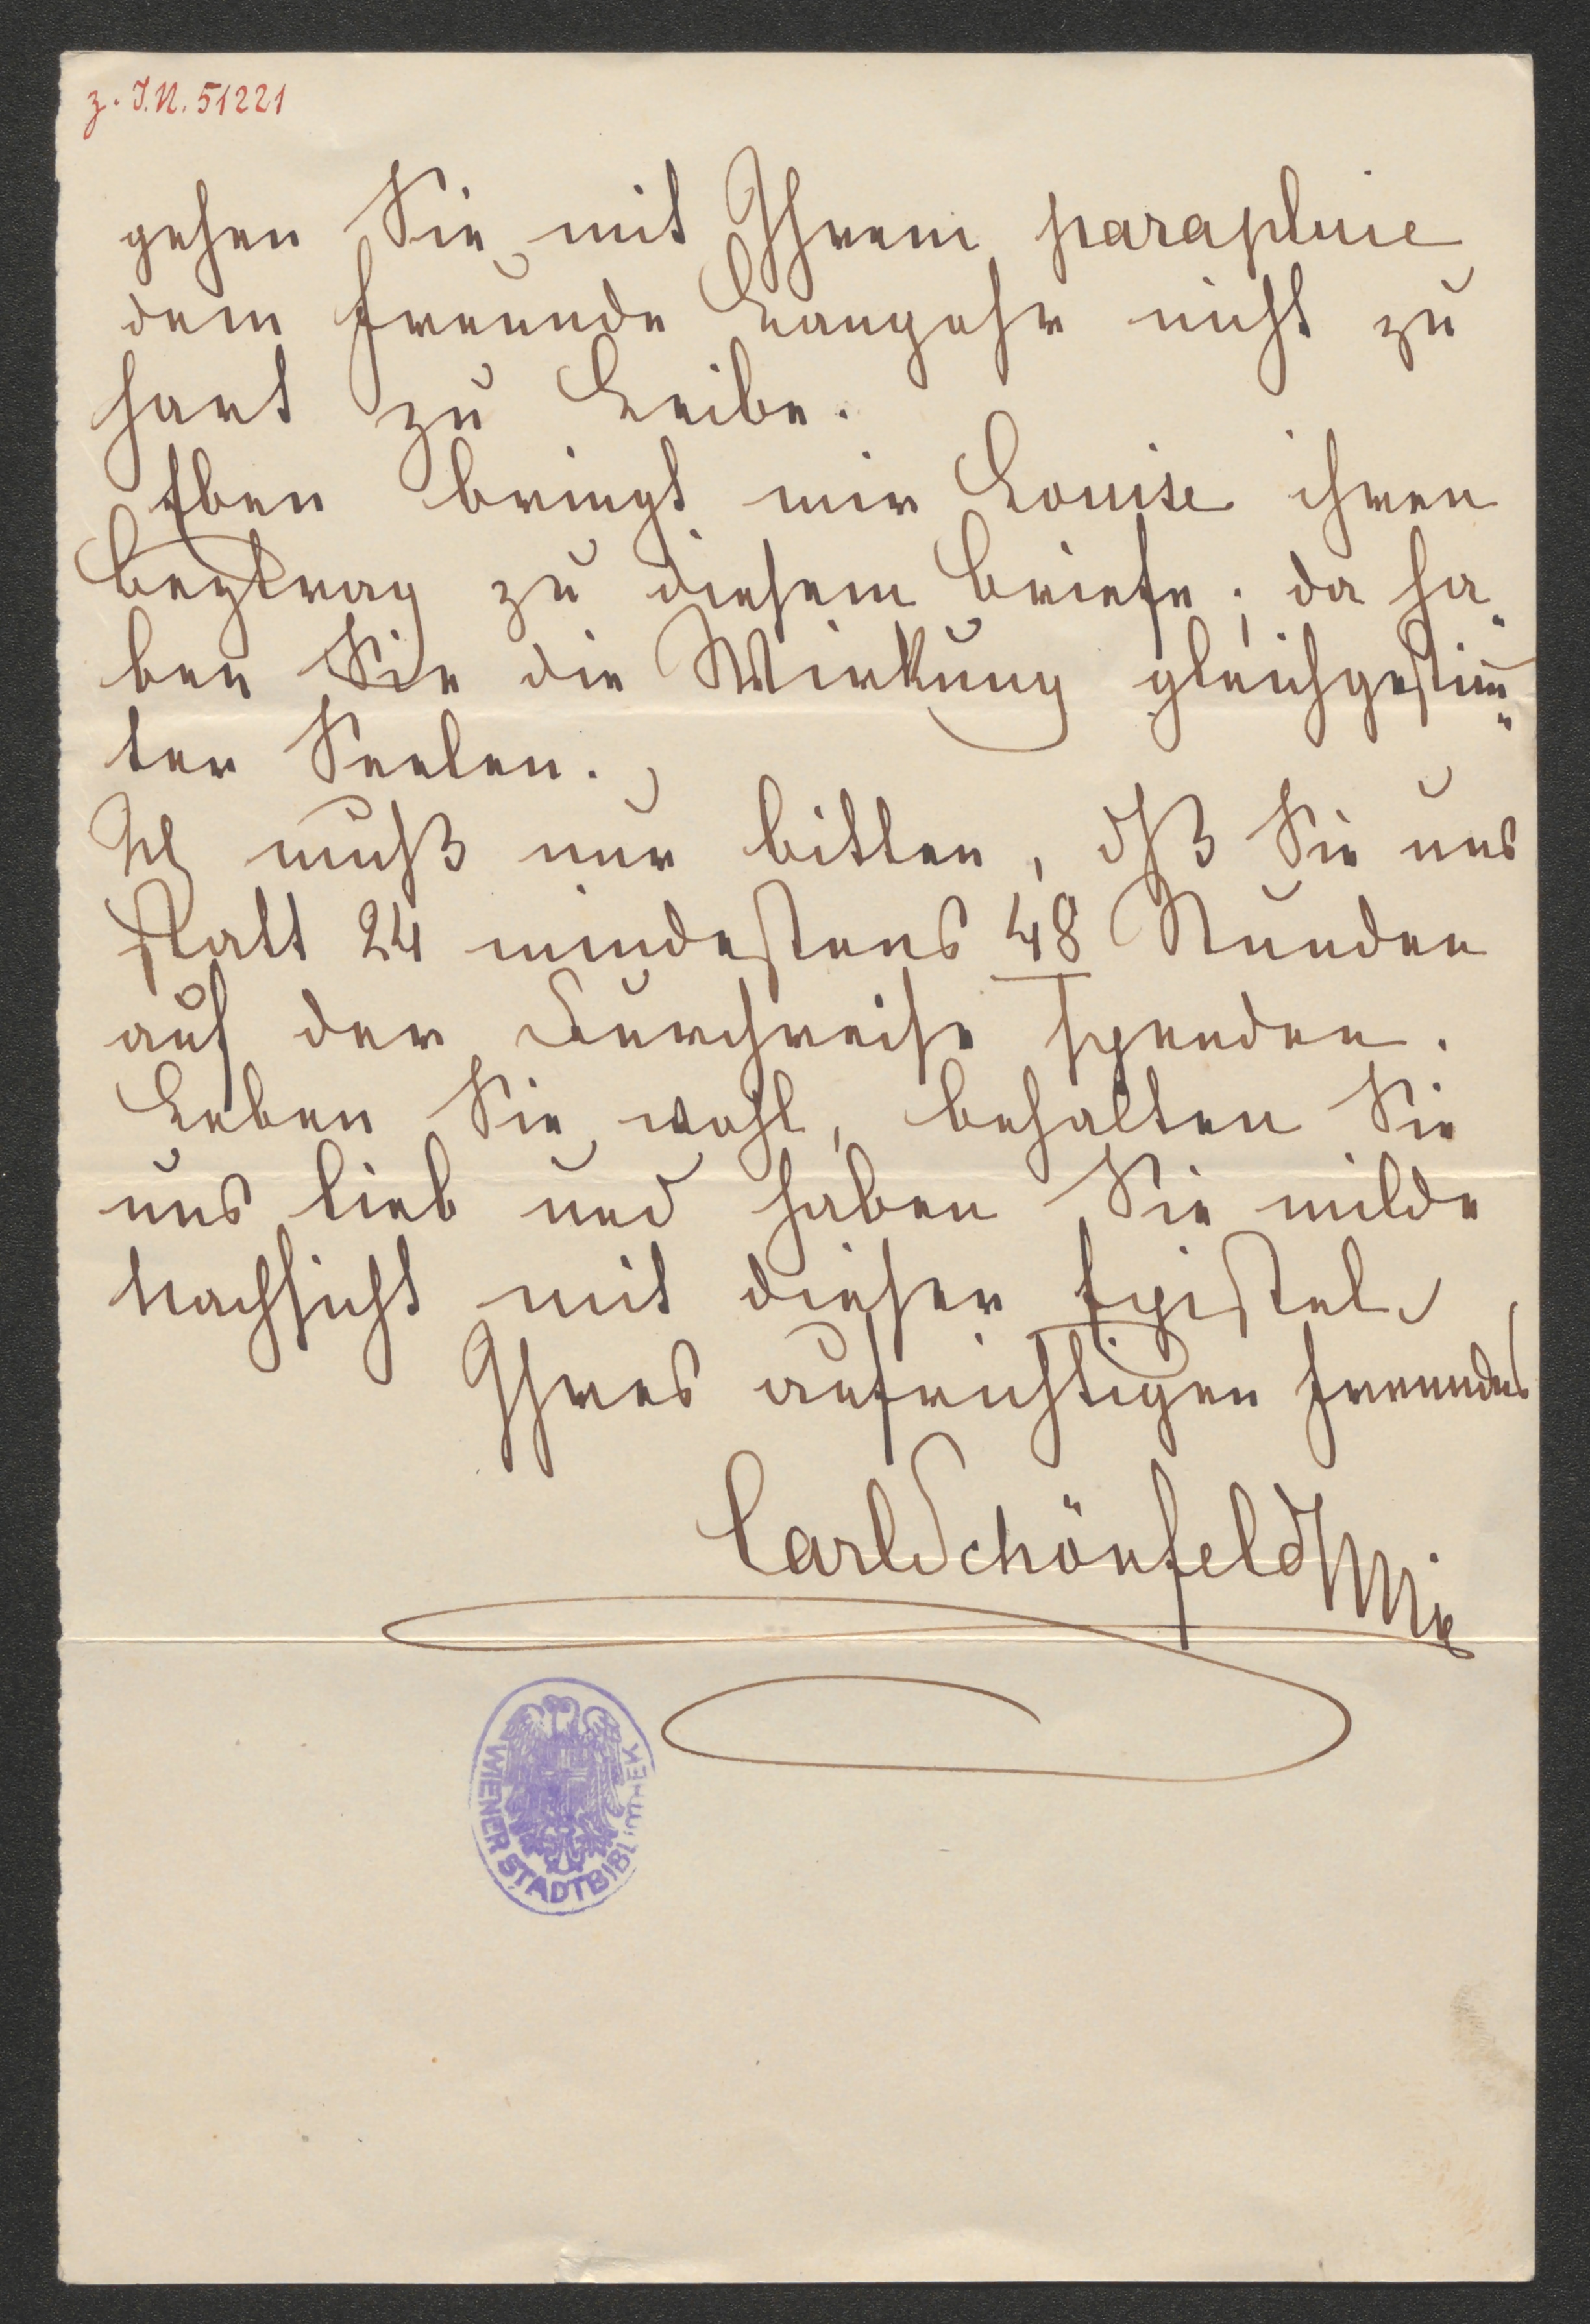 z. I.N. 51221
gehen Sie mit Ihrem parapluie
dem Freunde Langohr nicht zu
hart zu Leibe.
Eben bringt mir Louise ihren
Beytrag zu diesem Briefe; da ha„
ben Sie die Wirkung gleichgestim̅„
ter Seelen.
Ich muß nur bitten, dß Sie uns
statt 24 mindestens 48 Stunden
auf der Durchreise spenden.
Leben Sie wohl, behalten Sie
uns lieb und haben Sie milde
Nachsicht mit dieser Epistel
Ihres aufrichtigen Freundes
Carl Schönfeld
WIENER STADTBIBLIOTHEK